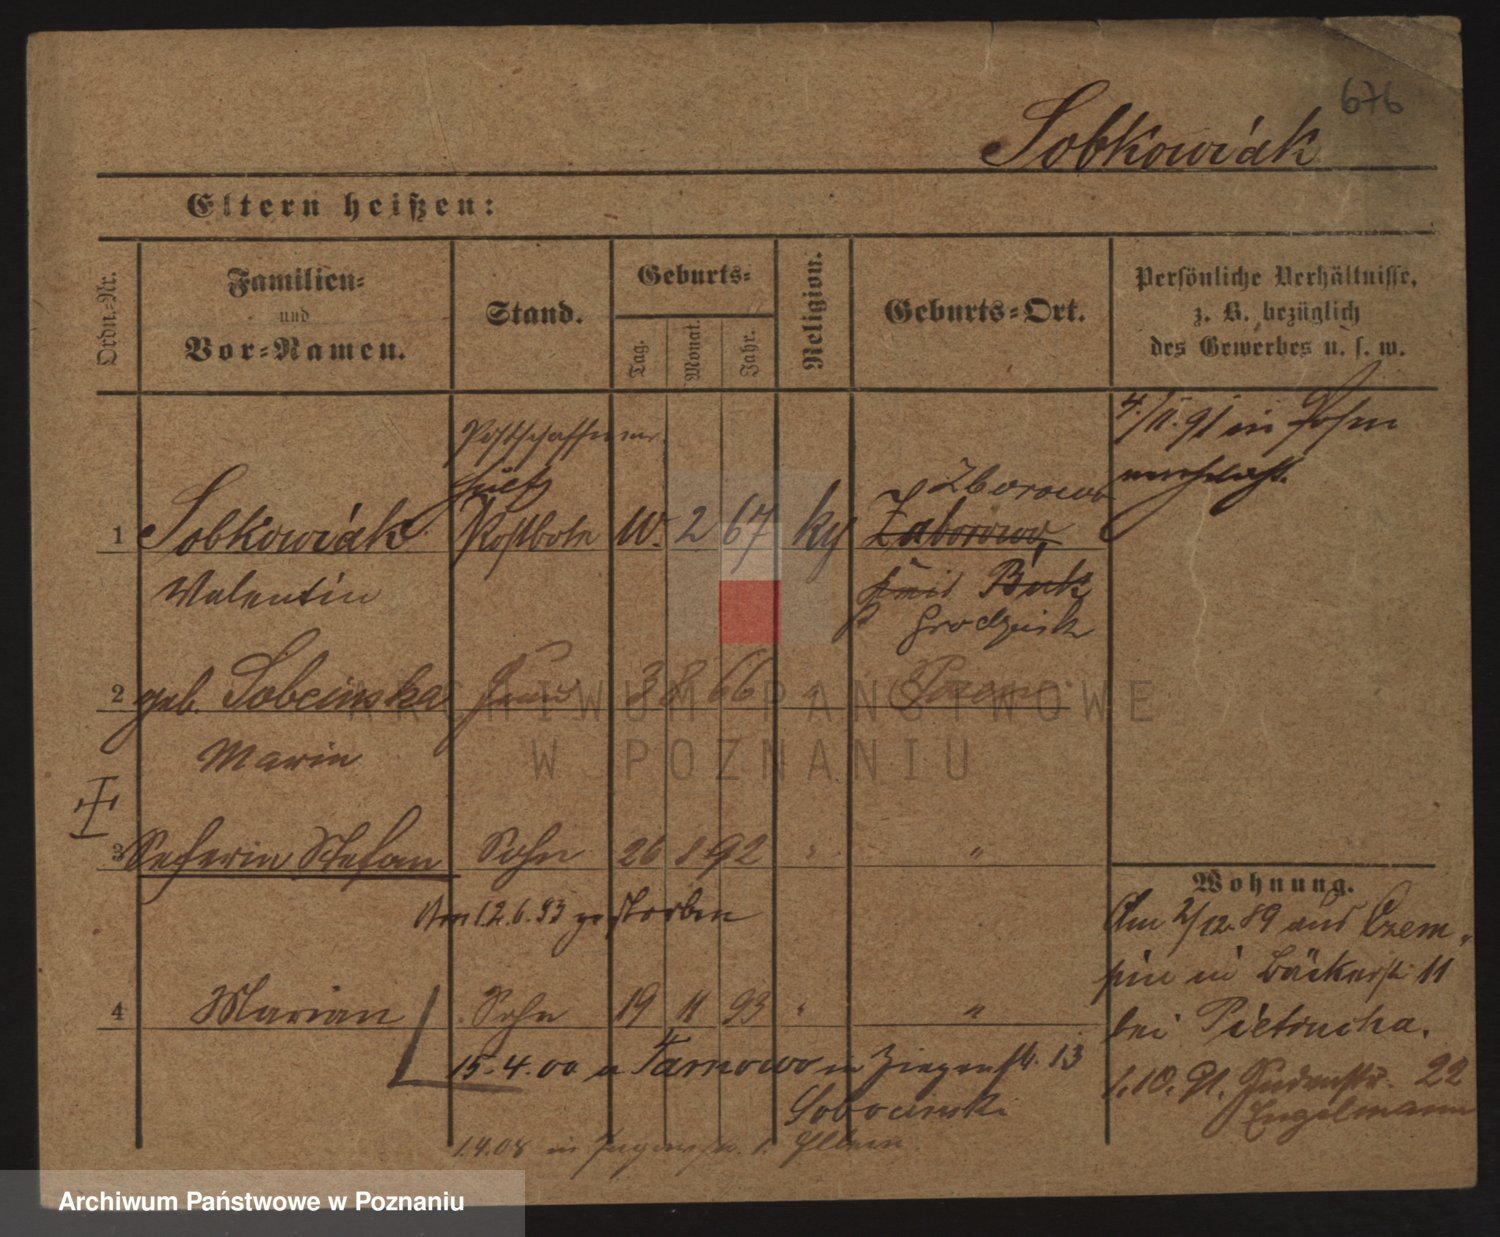 676
Sobkowiak
Eltern heißen:
Ordn.-Nr.
Familien-
und
Vor-Namen.
Stand.
Geburts-
Tag.
Monat.
Jahr.
Religion.
Geburts-Ort.
Persönliche Verhältnisse,
z. B. bezüglich
des Gewerbes u. s. w.
Postschaffner
4./11. 91 in Posen
Zborowo
1 Sobkowiak Postbote 10. 2 67 kg Zaborowo,
Valentin Buk
Grodzisk
2 geb. Sobcinska Frau 3 8 66 " Posen
Marie
3 Severin Stefan Sohn 26 8 92 " "
Am 12.6.93 gestorben
4 Marian Sohn 19 11 93 " "
15.4.00 n Tarnowo in Ziegenstr. 13
Sobocinski
1.4.08 in
Wohnung.
Am 2/12. 89 aus Czem-
pin in Bäckerstr. 11
bei Pietrucha.
1.10. 91. Judenstr. 22
Engelmann
ARCHIWUM PAŃSTWOWE
W POZNANIU
Archiwum Państwowe w Poznaniu